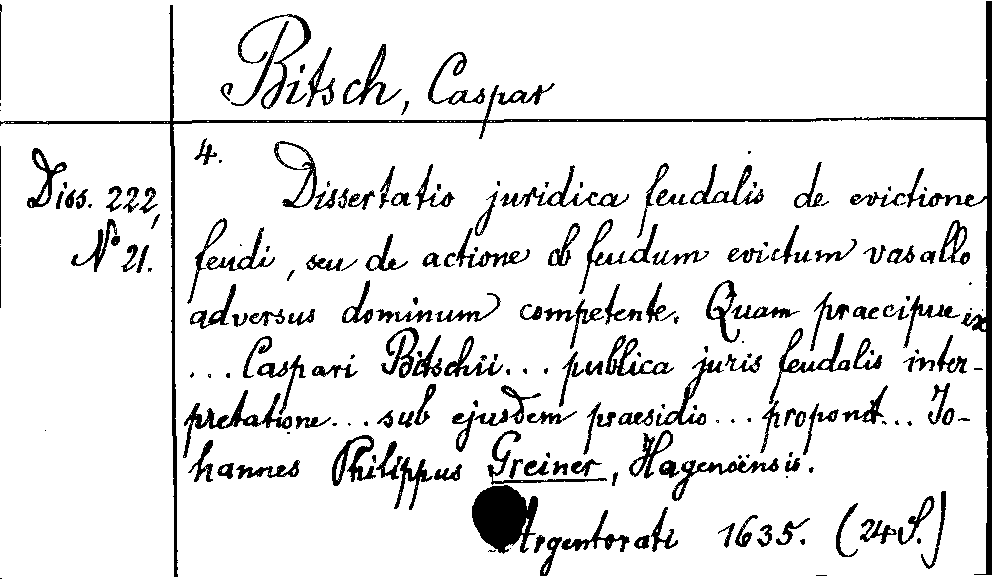 Bitsch, Caspar
Diss. 222,
No 21.
4.
Dissertatio juridica feudalis de evictione
feudi, seu de actione ob feudum evictum vasallo
adversus dominum competente. Quam praecipue ex
... Caspari Bitschii... publica juris feudalis inter-
pretatione... sub ejusdem praesidio... proponit... Jo-
hannes Philippus Greiner, Hagenoënsis.
Argentorati 1635. (24 S.)